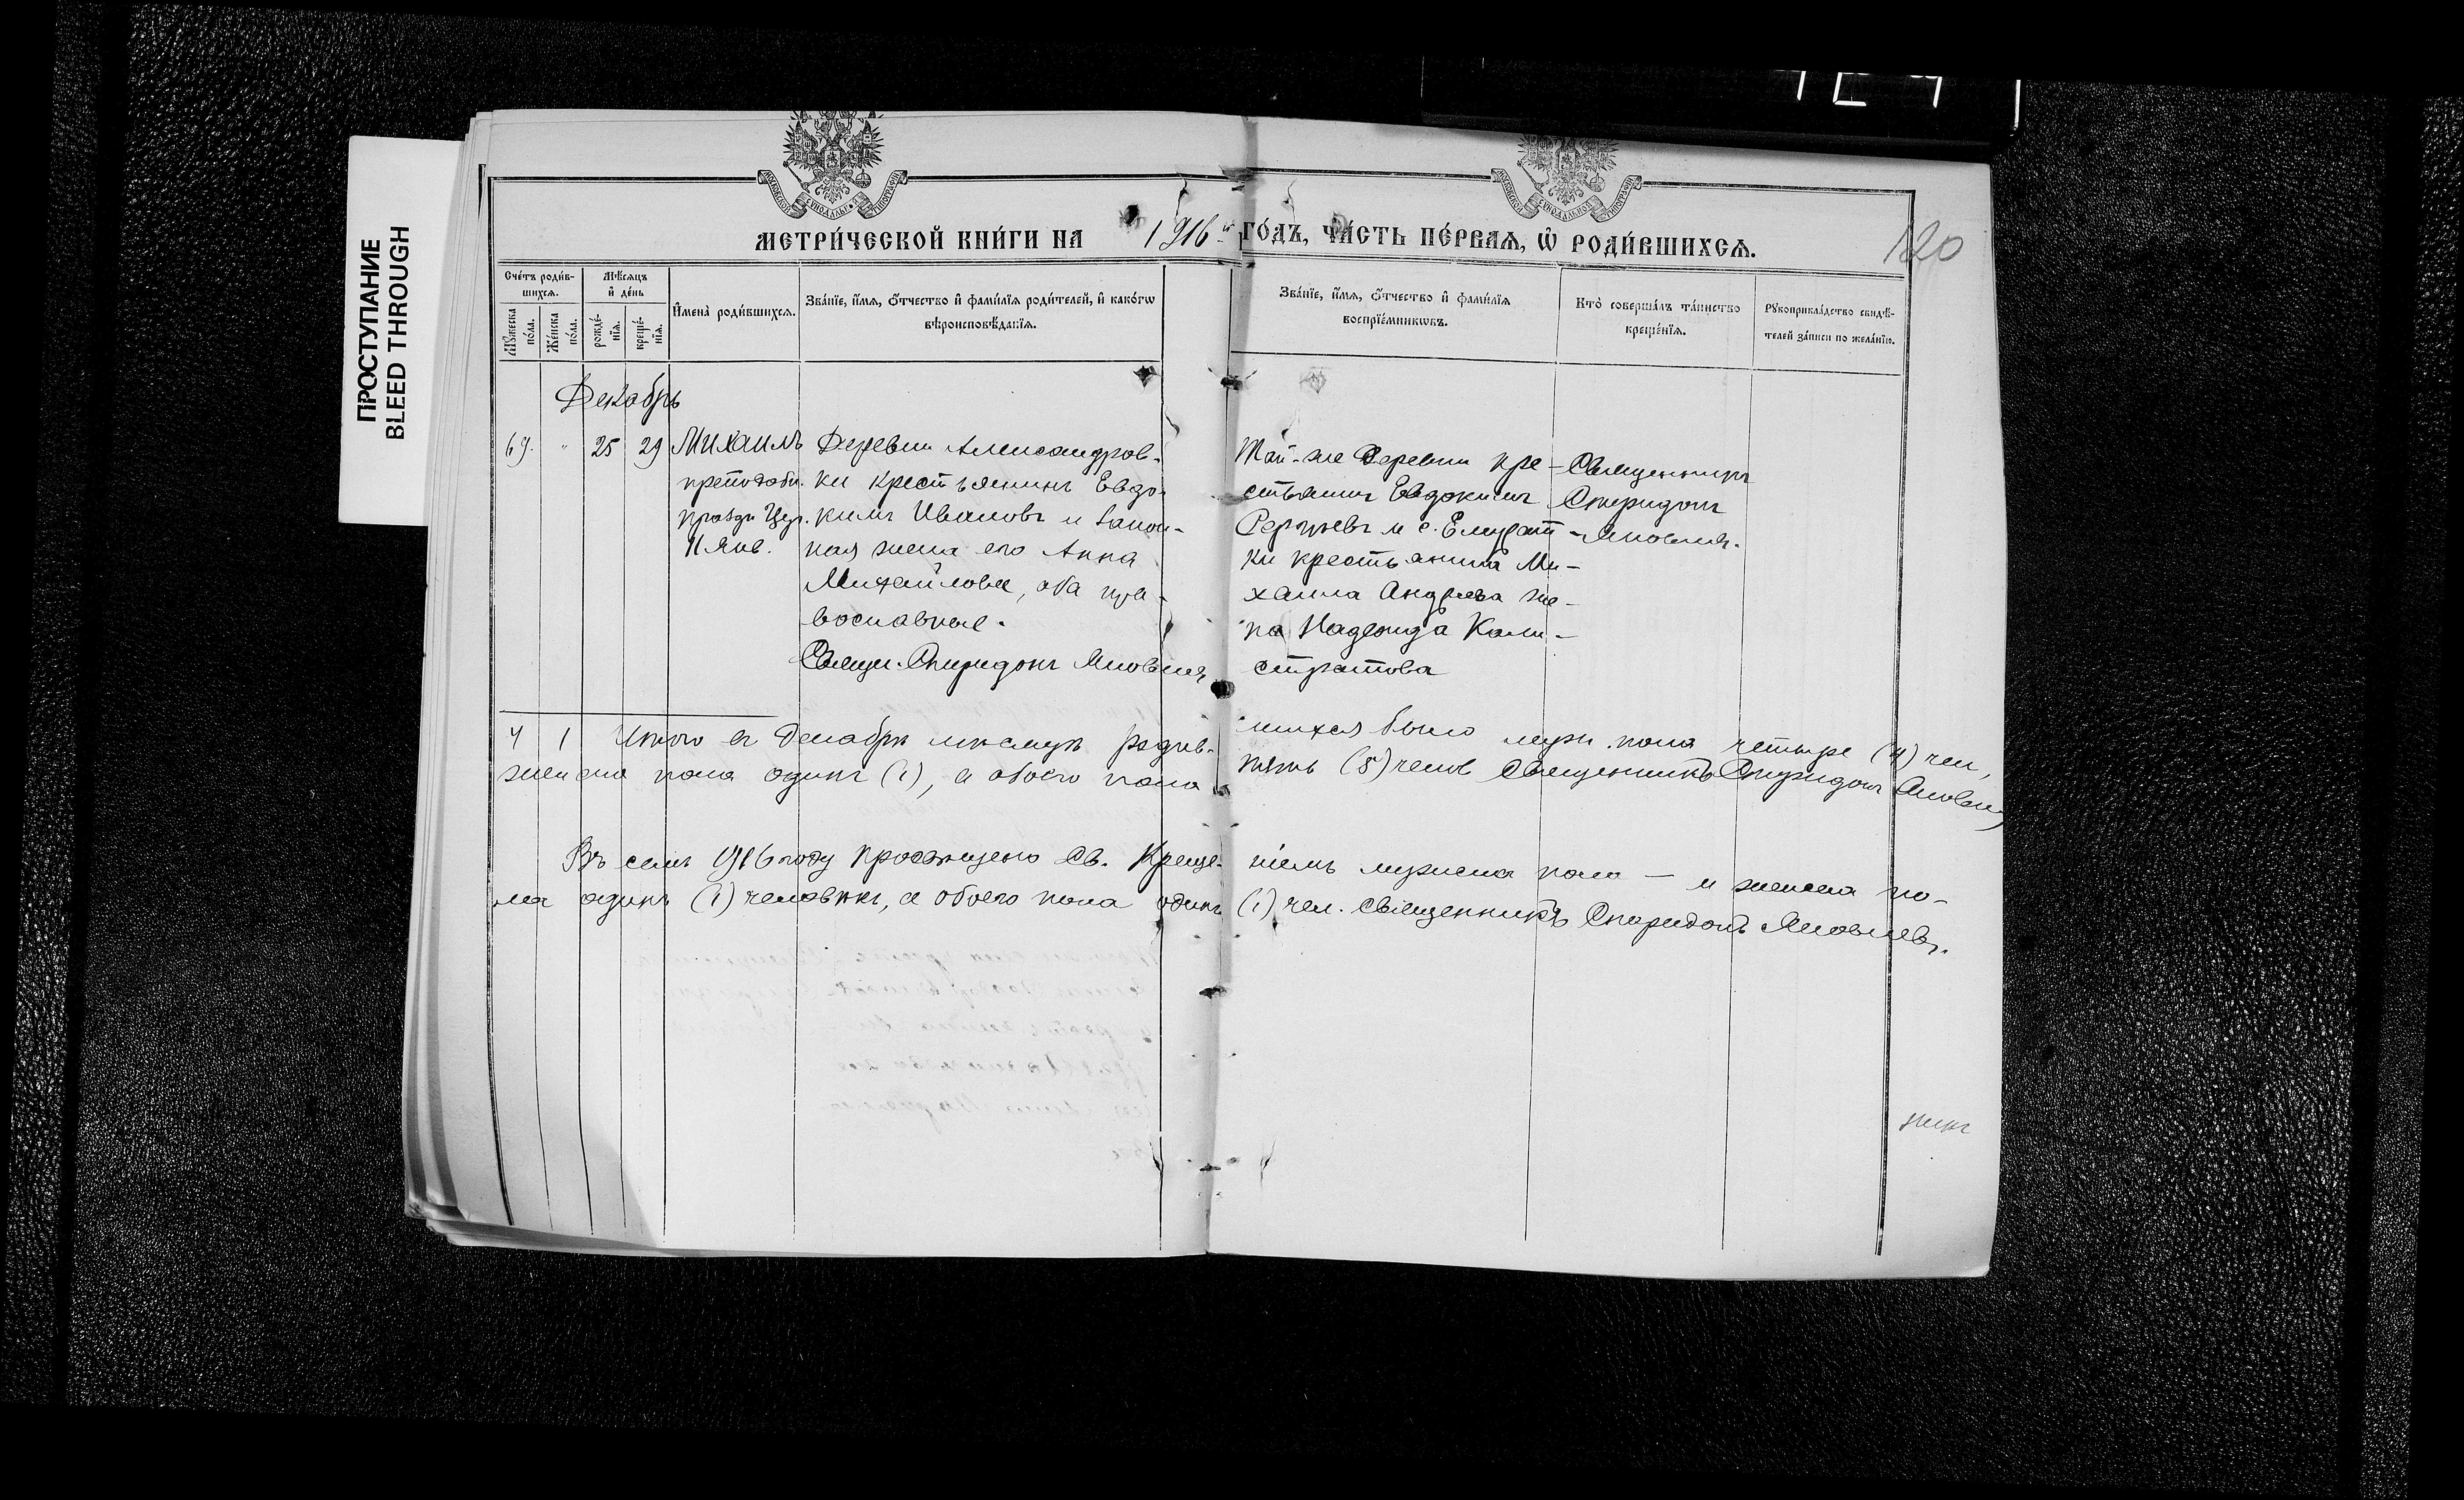 ПРОСТУПАНИЕ
BLEED THROUGH
МЕТРИ́ЧЕСКОЙ КНИ́ГИ НА 1916й ГО́ДЪ, ЧА́СТЬ ПЕ́РВАѦ, Ѡ҆ РОДИ́ВШИХСѦ.
120
Сче́тъ роди́в-
шихсѧ.
Мѣ́сѧцъ
и҆ де́нь
Мꙋ́жеска
по́ла.
Же́нска
по́ла.
рожде́-
нїѧ.
креще́-
нїѧ.
И҆мена̀ роди́вшихсѧ.
Зва́нїе, и҆́мѧ, ѻ҆́тчество и҆ фами́лїѧ роди́телей, и҆ како́гѡ
вѣроисповѣ́данїѧ.
Зва́нїе, и҆́мѧ, ѻ҆́тчество и҆ фами́лїѧ
воспрїе́мникѡвъ.
Кто̀ соверша́лъ та́инство
креще́нїѧ.
Рꙋкоприкла́дство свидѣ́-
телей за́писи по жела́нїю.
Декабрь
69. " 25 29 Михаилъ
преподобн.
11 Янв.
Деревни Александров-
ки крестьянинъ Евдо-
кимъ Ивановъ и закон-
ная жена его Анна
Михайлова, оба пра-
вославные.
Свящ. Спиридонъ Яковлевъ
Той-же деревни кре-
стьянинъ Евдокимъ
Сергѣевъ и с.
ки крестьянина Ми-
хаила Андреева же-
на Надежда Кали-
стратова
Священникъ
Спиридонъ
Яковлевъ.
4 1 Итого въ Декабрѣ мѣсяцѣ родив-шихся было муж. пола четыре (4) чел,
женска пола одинъ (1), а обоего пола пять (5) челов Священникъ Спиридонъ Яковлевъ
Въ семъ 1916 году просвещено Св. Креще-ніемъ мужска пола — и женска по-
ла одинъ (1) человѣкъ, а обоего пола одинъ (1) чел. Священникъ Спиридонъ Яковлевъ.